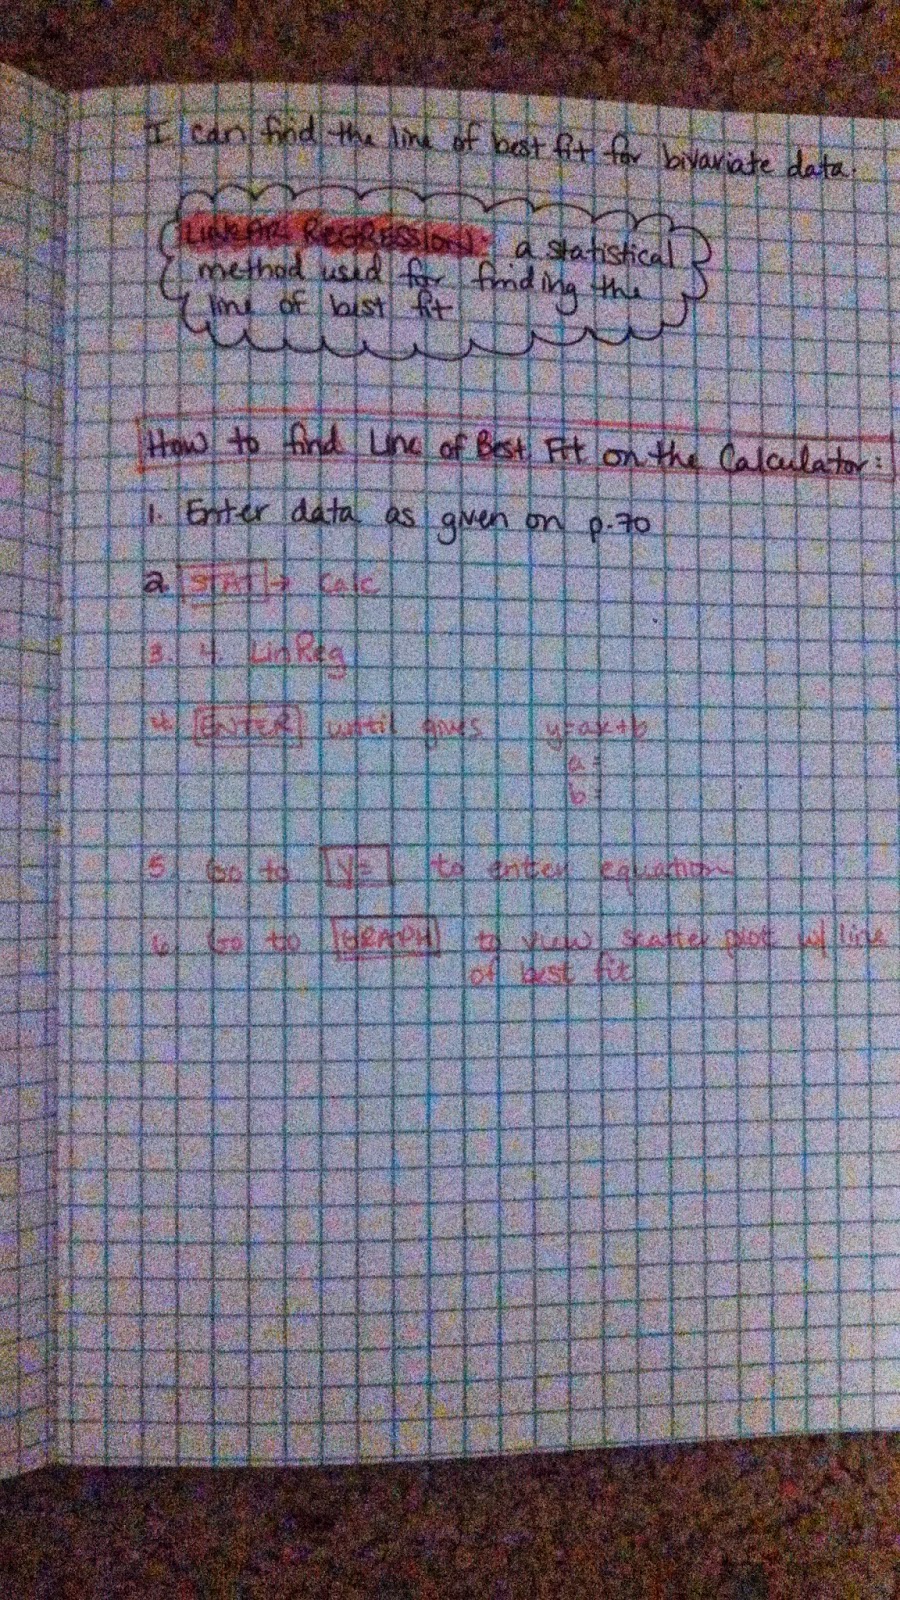 I can find the line of best fit for bivariate data.
LINEAR REGRESSION: a statistical
method used for finding the
line of best fit
How to find Line of Best Fit on the Calculator:
1. Enter data as given on p.70
2. STAT → Calc
3. 4. LinReg
4. ENTER until gives y=ax+b
a=
b=
5. Go to y= to enter equation
6. Go to GRAPH to view scatter plot w/ line
of best fit